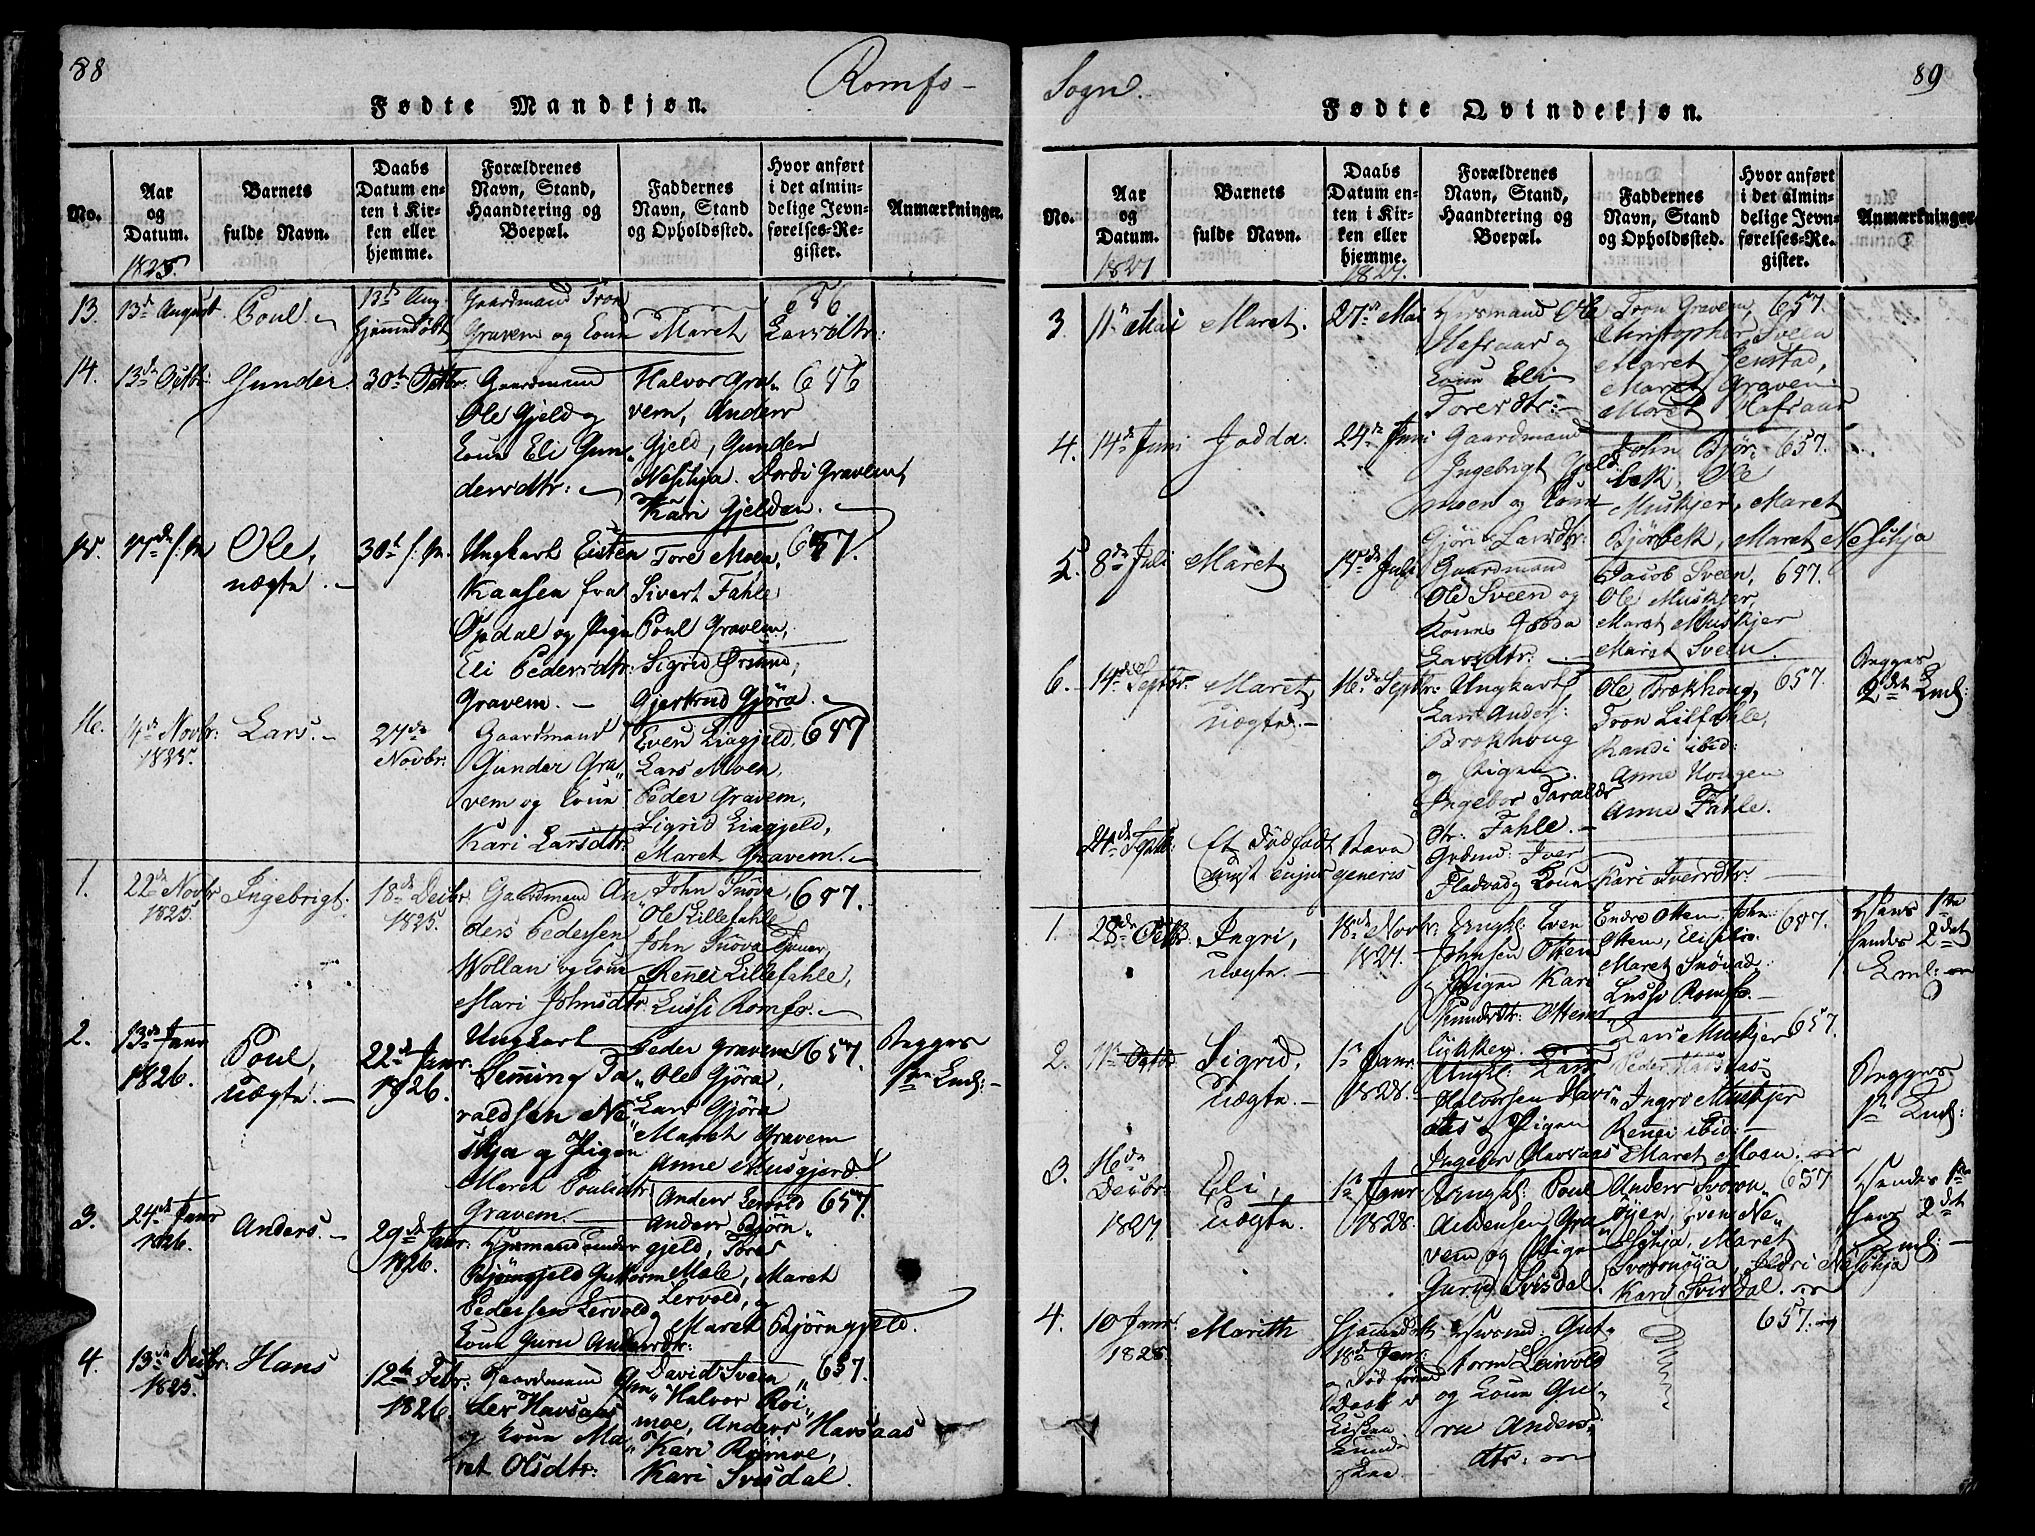 88
Romfo-
Fødte Mandkjøn.
No.
Aar og Datum.
Barnets fulde Navn.
Daabs Datum enten i Kirken eller hjemme.
Forældrenes Navn, Stand, Haandtering og Boepæl.
Faddernes Navn, Stand og Opholdssted.
Hvor anført i det almindelige Jevnførelses-Register.
Anmærkninger.
1825
13. 13de August Poul. 13de Aug. Hjemmedøbt Gaardmand Tron
Gravem og Kone Maret Larsdtr: 686
14. 13de Octbr: Gunder 30te Octbr. Gaardmand
Ole Gjeld og
Kone Eli Gun-
dersdtr:
Halvor Gra-
vem, Anders
Gjeld, Gunder
Nesihja. Dordi Gravem,
Kari Gjeldan.
686
15. Ole,
uægte.
Ungkarl Eisten
Kaasen fra
Opdal og Pige
Eli Pedersdtr:
Gravem.
Tore Moen,
Sivert Fahle
Poul Gravem,
Sigrid Ørsund,
Gjertrud Gjøra.
687.
16. 4de Novbr: 1825. Lars. 27de Novbr.
Gaardmand
Gunder Gra-
vem og Kone
Kari Larsdtr:
Even Liagjeld,
Lars Moen,
Peder Gravem,
Sigrid Liagjeld,
Maret Gravem.
687
1. 22de Novbr 1825. Ingebrigt. 18de Decbr. 1825.
Gaardmand An-
ders Pedersen
Wollan og Kone
Mari Johnsdtr.
John Snøva
Ole Lillefahle
John Snøva
Rennei Lillefahle,
Lussi Romfo.
687.
2. 13de Janr 1826. Poul, uægte. 22de Janr. 1826.
Ungkarl
Hemming Ta-
raldsen Ne-
sihja og Pigen
Maret Poulsdtr
Gravem.
Peder Gravem
Ole Gjøra,
Lars Gjøra
Maret Gravem
Anne Musgjerd
657.
Begges
1ste Leiel:
3. 24de Janr 1826. Anders. 29de Janr. 1826.
Huusmand under
Bjørngjeld Guttorm
Pedersen Lervold og
Kone Guru Andersdtr:
Anders Lervold
Anders Bjørn-
gjeld, Tore
Mæle, Maret
Lervold, og
Maret Bjørngjeld.
657.
4. 13de Decbr: 1825. Hans 12te Febr. 1826.
Gaardmand Gun-
der Havsaas
og Kone Ma-
ret Olsdtr:
David Sveen
Halvor Roi-
moe, Anders Havsaas
Kari Roimoe,
Kari Svisdal.
657.
Sogn.
89
Fødte Qvindekjøn.
No.
Aar og Datum.
Barnets fulde Navn.
Daabs Datum enten i Kirken eller hjemme.
Forældrenes Navn, Stand, Haandtering og Boepæl.
Faddernes Navn, Stand og Opholdssted.
Hvor anført i det almindelige Jevnførelses-Register.
Anmærkninger
1827
1827.
3. 11te Mai Maret. 27de Mai
Huusmand Ole
Hafsaas og
Kone Eli
Toresdtr:
Tron Gravem,
Christopher Sveen
Maret Jenstad,
Maret Gravem
Maret Hafsaas
657.
4. 14de Juni Jodda. 24de Juni
Gaardmand
Ingebrigt Gjeld-
moen og Kone
Gjøri Larsdtr:
John Bjør-
bek, Ole
Muskjer, Maret
Bjørbek, Maret Nesihja
657.
5. 8de Juli Maret 15de Juli
Gaardmand
Ole Sveen og
Kone Jodda
Larsdtr:
Jacob Sveen,
Ole Muskjer,
Maret Muskjer
Maret Sveen.
697.
6. 14de Septbr. Maret, uægte. 16de Septbr:
Ungkarl
Lars Anders:
Brækhoug
og Pigen
Ingebor Taralds-
dtr: Fahle.
Ole Brækhoug,
Tron Lilfahle,
Randi ibid:
Anne Hougen
Anne Fahle.
657.
Begges
2det Leiel:
24de Septbr Et Dødfødt Barn
cujus generis
Iver
Fladvad og Kone Kari Iversdtr:
1. 28de Octbr. Ingri, uægte. 18de Novbr. 1827.
Ungkl: Even
Johnsen Ottem
og Pigen Kari
Knudsdtr: Ottems
Endre Ottem, John
Ottem, Eli ibid:
Maret Snøvad
Lussi Romfo.
687.
Hans 1ste
Hendes 2det
Leiel:
2. Sigrid, uægte. 1ste Janr. 1828.
Ungkl: Lars
Halvorsen Havs-
aas og Pigen
Ingebor Havsaas
Lars Muskjer
Peder Havsaas
Ingri Muskjer
Rennei ibid:
Maret Moen.
657.
Begges
1ste Leiel:
3. 16de Decbr. 1827 Eli, uægte. 1ste Janr 1828.
Ungkl: Poul
Gra-
vem og Pigen
Guru Svisdal.
Anders Svoren-
øyen, Even Ne-
sihja, Maret
Svorenøya, Sidri Nesihja
Kari Svisdal.
657
Hendes 1ste
Hans 2det
Leiel:
4. 10 Janr. 1828. Marith Hjemmedøbt
18de Janr:
og Død førend
Daab i
Kirken
kunde
skee.
Huusmd: Gut-
torm Leirvold
og Kone Gu-
ru Anders-
dtr:
657.